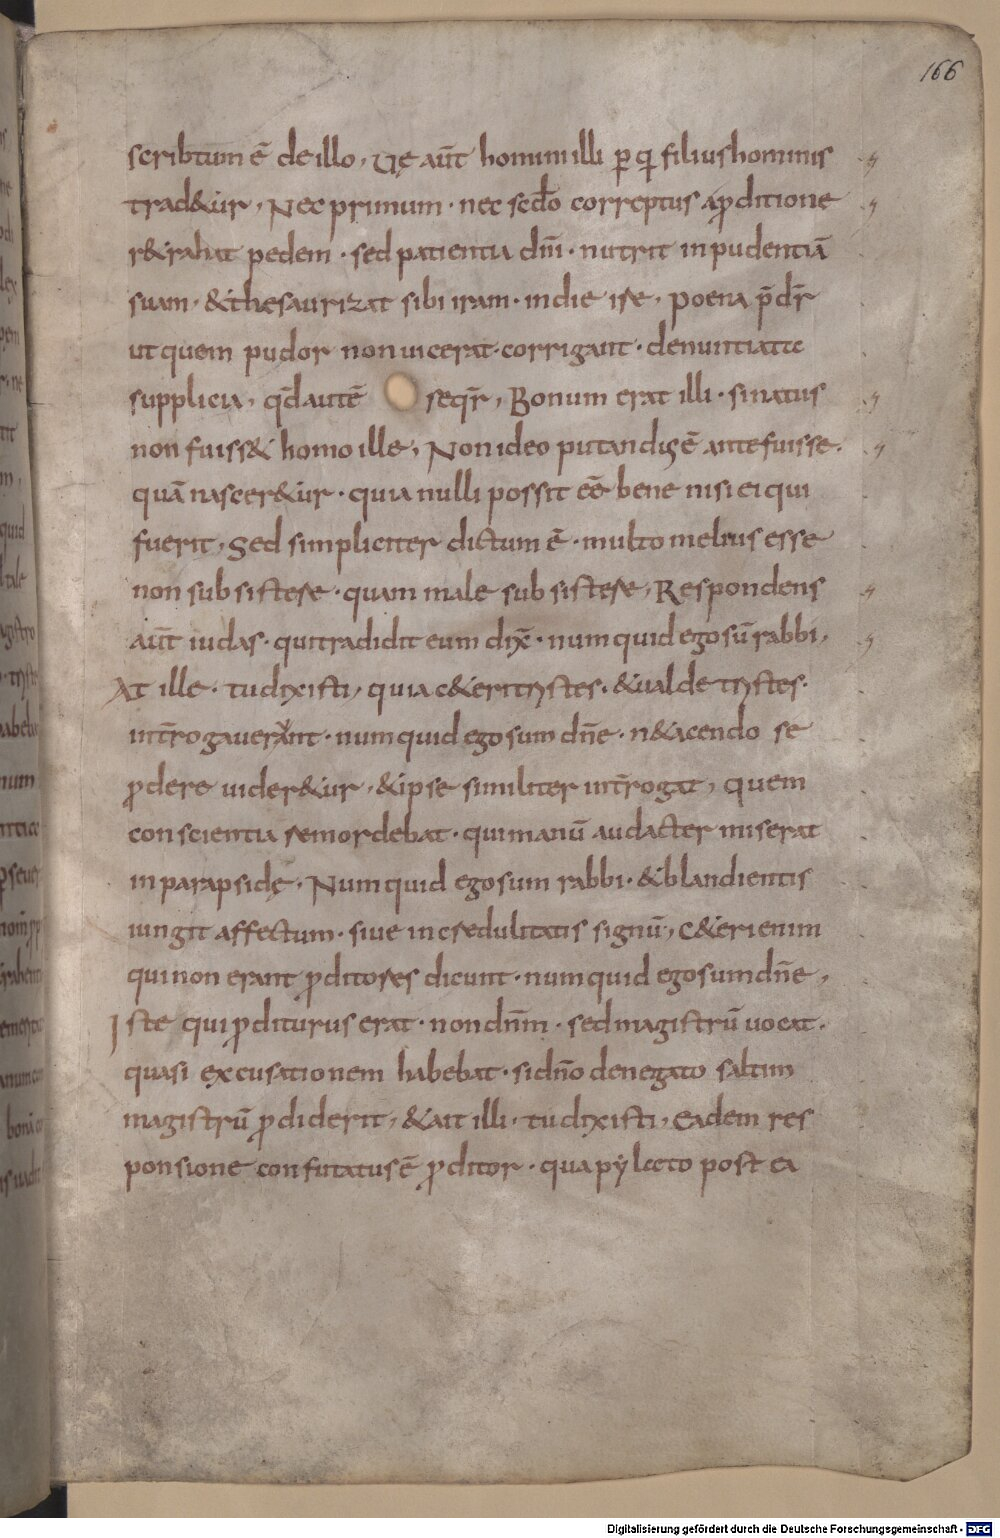 166
scribtum ē de illo, Vę aūt homini illi ꝑ q̄ filius hominis
trad&ur, Nec primum · nec scdo correptus a ꝓditione
r&rahat pedem · sed patientia dn̄i · nutrit inpudentiā
suam · & thesaurizat sibi iram · in die irę, poena p̄dr̄
ut quem pudor non uicerat · corrigant · denuntiatę
supplicia, qd̄ autē seqr̄, Bonum erat illi · si natus
non fuiss& homo ille, Non ideo putandus ē ante fuisse ·
quā nascer&ur · quia nulli possit eē bene nisi ei qui
fuerit, Sed simpliciter dictum ē · multo melius esse
non subsistere · quam male subsistere, Respondens
aūt iudas · qui tradidit eum dix̄ · numquid ego sū rabbi,
At ille · tu dixisti, quia c&eri tristes · & ualde tristes ·
int̄rogauerant · numquid ego sum dn̄e · ne tacendo se
ꝓdere uider&ur, & ipse similiter int̄rogat, quem
conscientia remordebat · qui manū audacter miserat
in parapsidę · Numquid ego sum rabbi · & blandientis
iungit affectum · siue incredulitatis signū, C&eri enim
qui non erant ꝓditores dicunt · numquid ego sum dn̄e,
Iste qui ꝓditurus erat · non dn̄m · sed magistrū uocat ·
quasi excusationem habebat · si dn̄o denegato saltim
magistrū ꝓdiderit, & ait illi · tu dixisti, Eadem res
ponsione confutatus ē ꝓditor · qua pylato postea
Digitalisierung gefördert durch die Deutsche Forschungsgemeinschaft - DFG